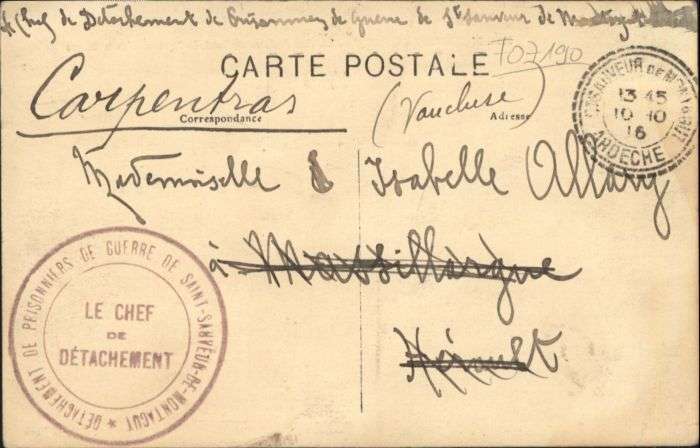 Le Chef de Détachement de Prisonniers de Guerre de St Sauveur de Montagut
T07190
CARTE POSTALE
Carpentras
(Vaucluse)
Correspondance
Adresse
Mademoiselle Isabelle Allary
à Massillargue
Hérault
ST SAUVEUR DE MONTAGUT
13 45
10 10
16
ARDECHE
DÉTACHEMENT DE PRISONNIERS DE GUERRE DE SAINT-SAUVEUR-DE-MONTAGUT *
LE CHEF
DE
DÉTACHEMENT